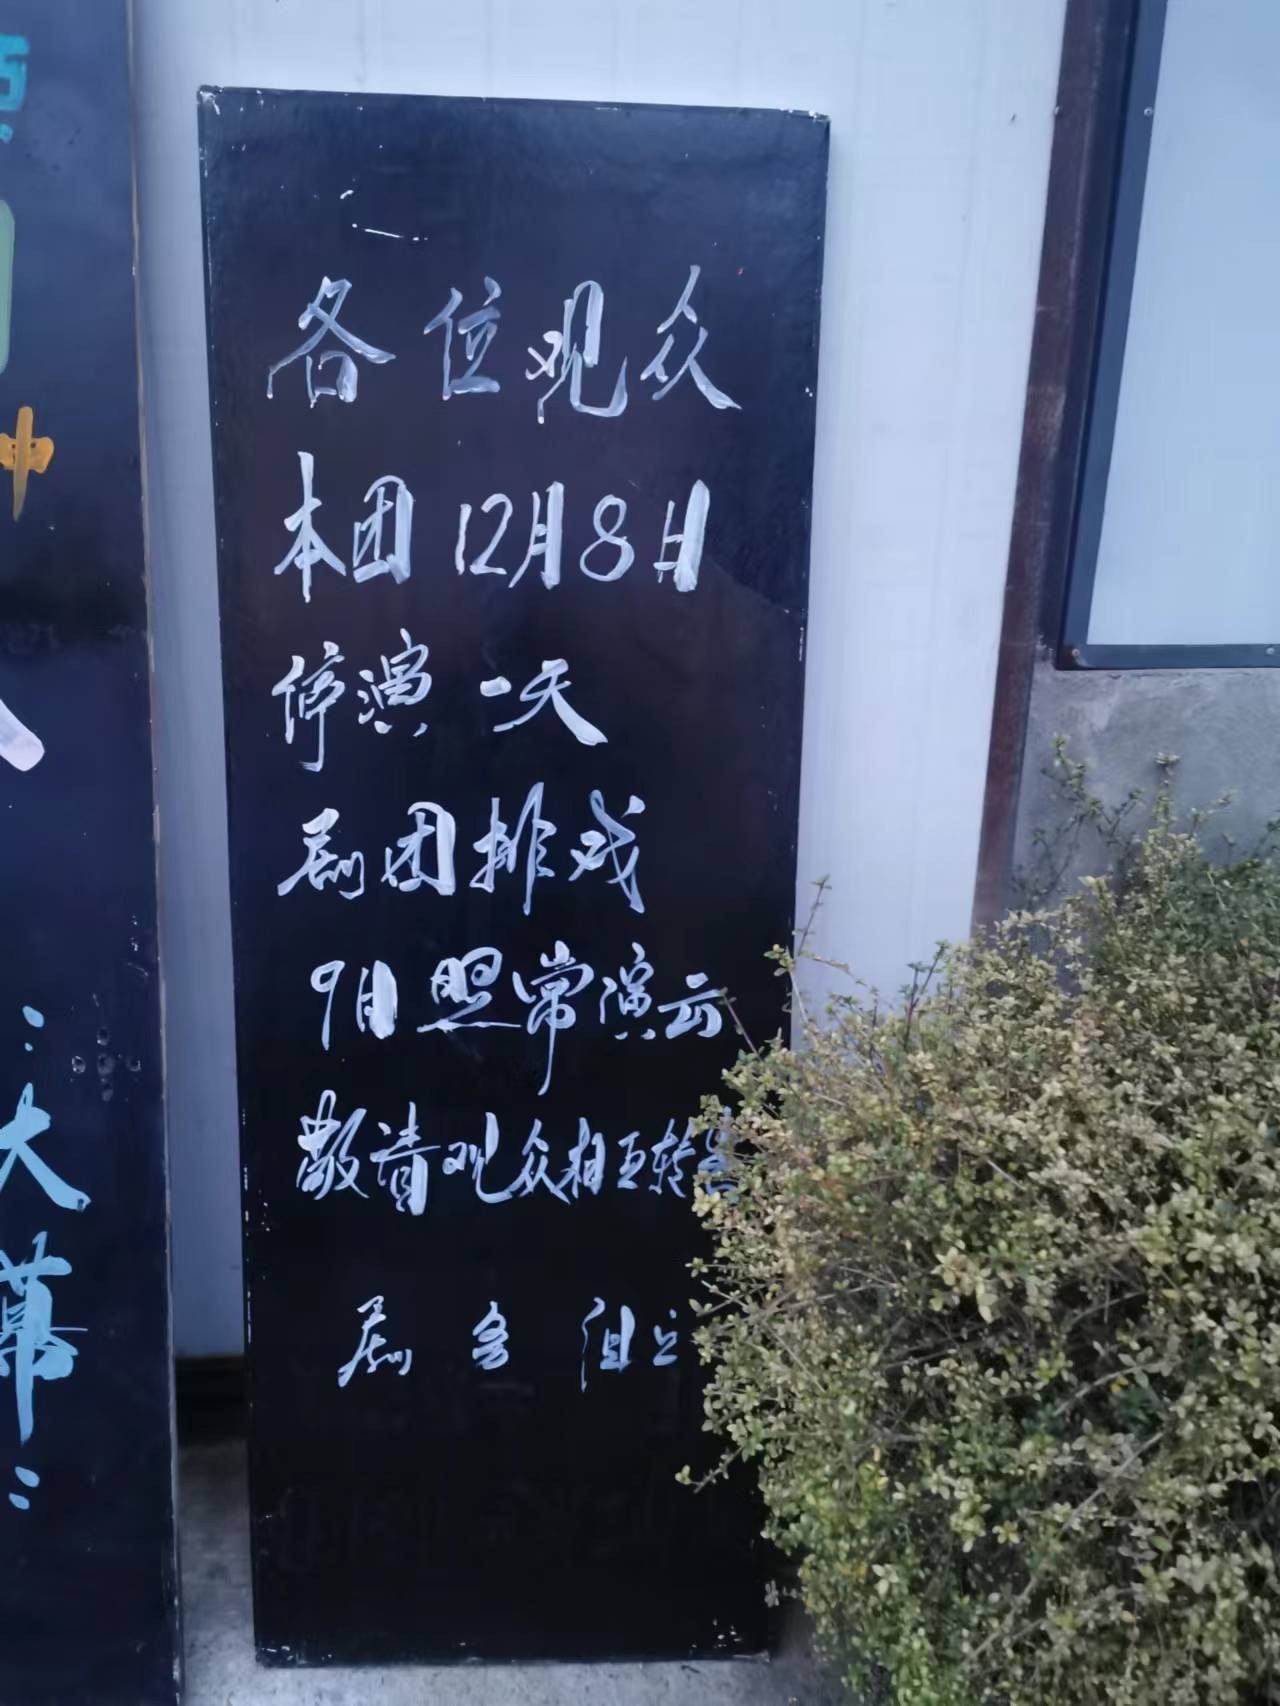 各位观众
本团12月8日
停演一天
剧团排戏
9日照常演出
敬请观众相互转告
剧务组
大幕